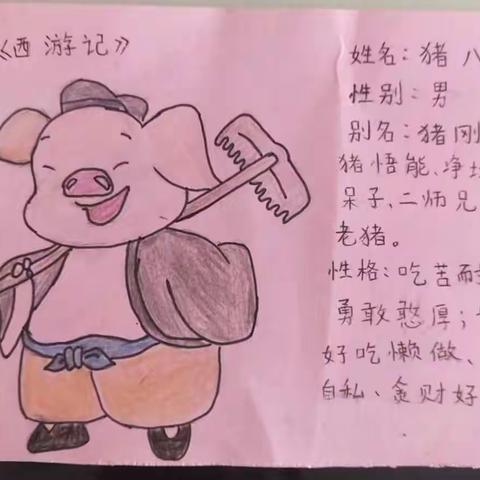 《西游记》
姓名：猪八
性别：男
别名：猪刚
猪悟能、净坛
呆子、二师兄
老猪。
性格：吃苦而
勇敢憨厚；
好吃懒做、
自私、贪财好